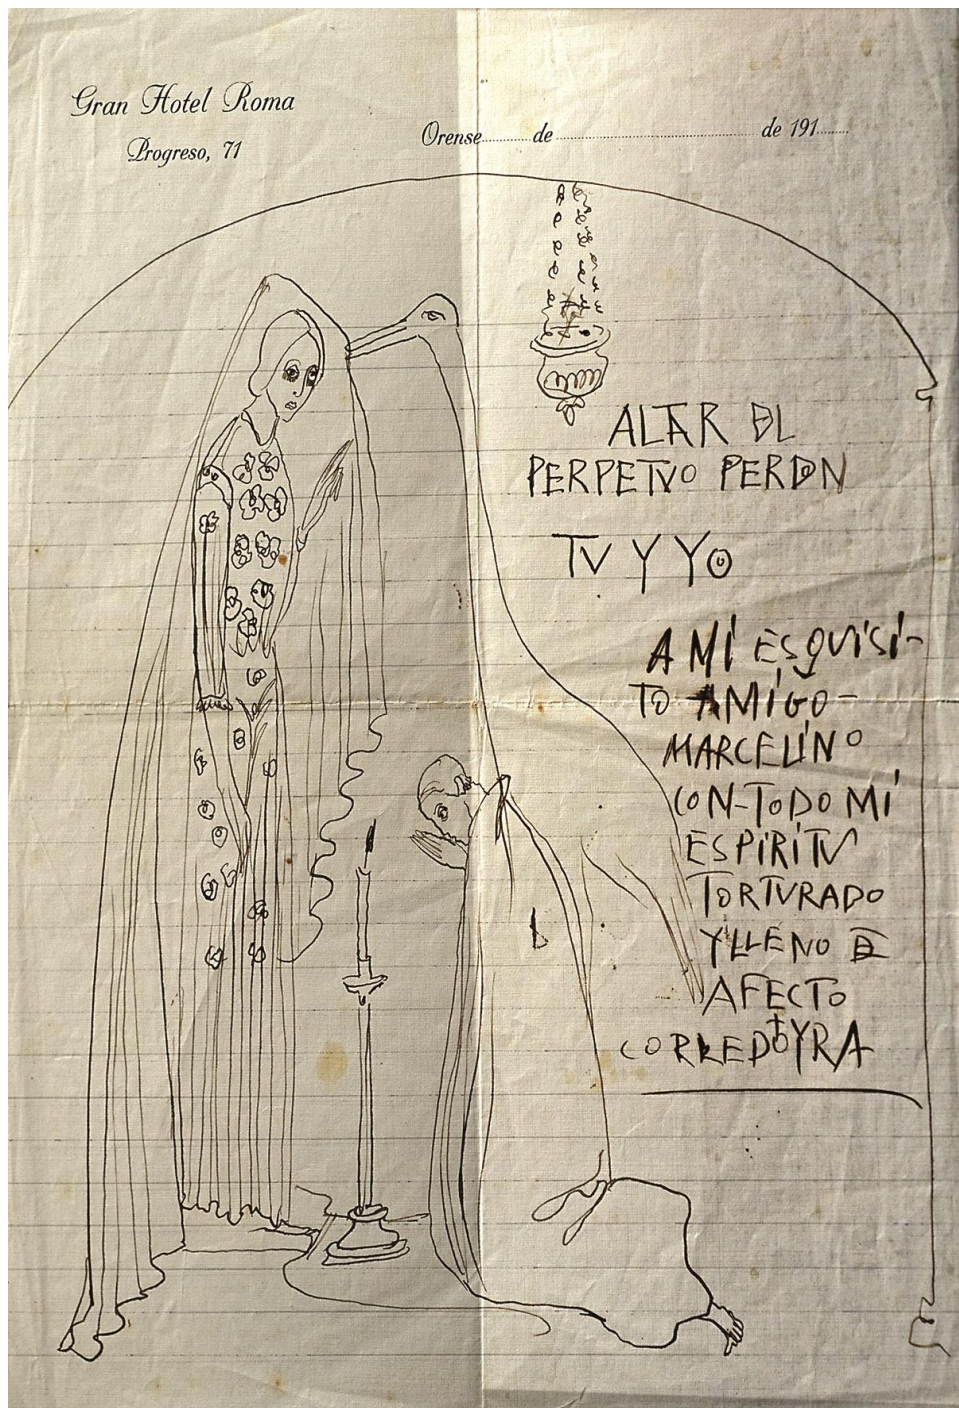 Gran Hotel Roma
Progreso, 71
Orense........de................................de 191......
ALTAR DEL
PERPETVO PERDON
TV Y YO
A MI ESQVISI-
TO AMIGO-
MARCELINO
CON-TODO MI
ESPIRITV
TORTVRADO
Y LLENO DE
AFECTO
CORREDOYRA